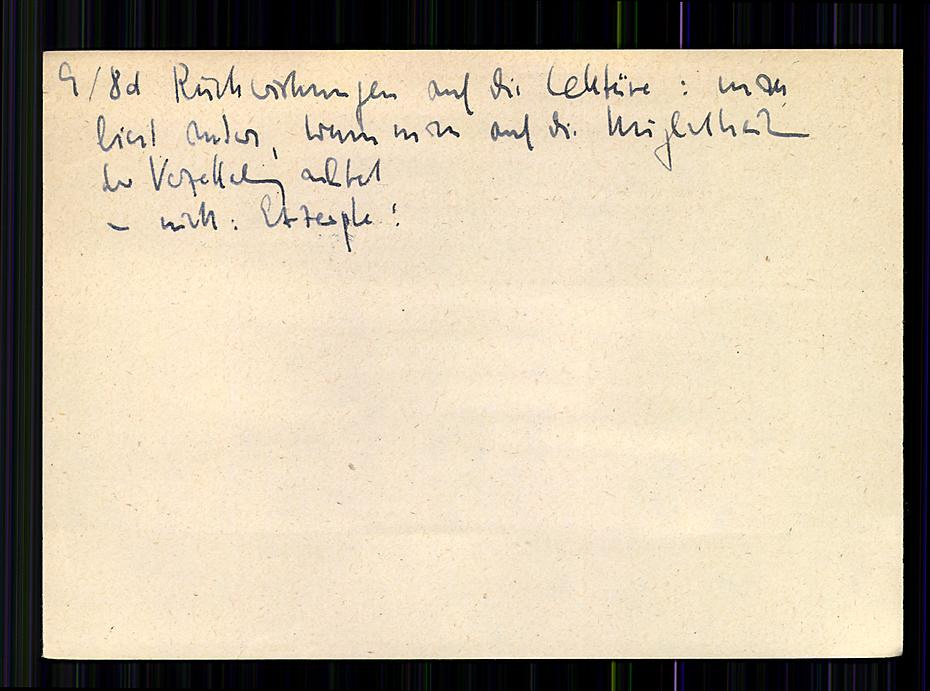 9/8d Rückwirkungen auf die Lektüre: man
liest anders, wenn man auf die Möglichkeit
der Verzettelung achtet
– nicht: Exzerpte!